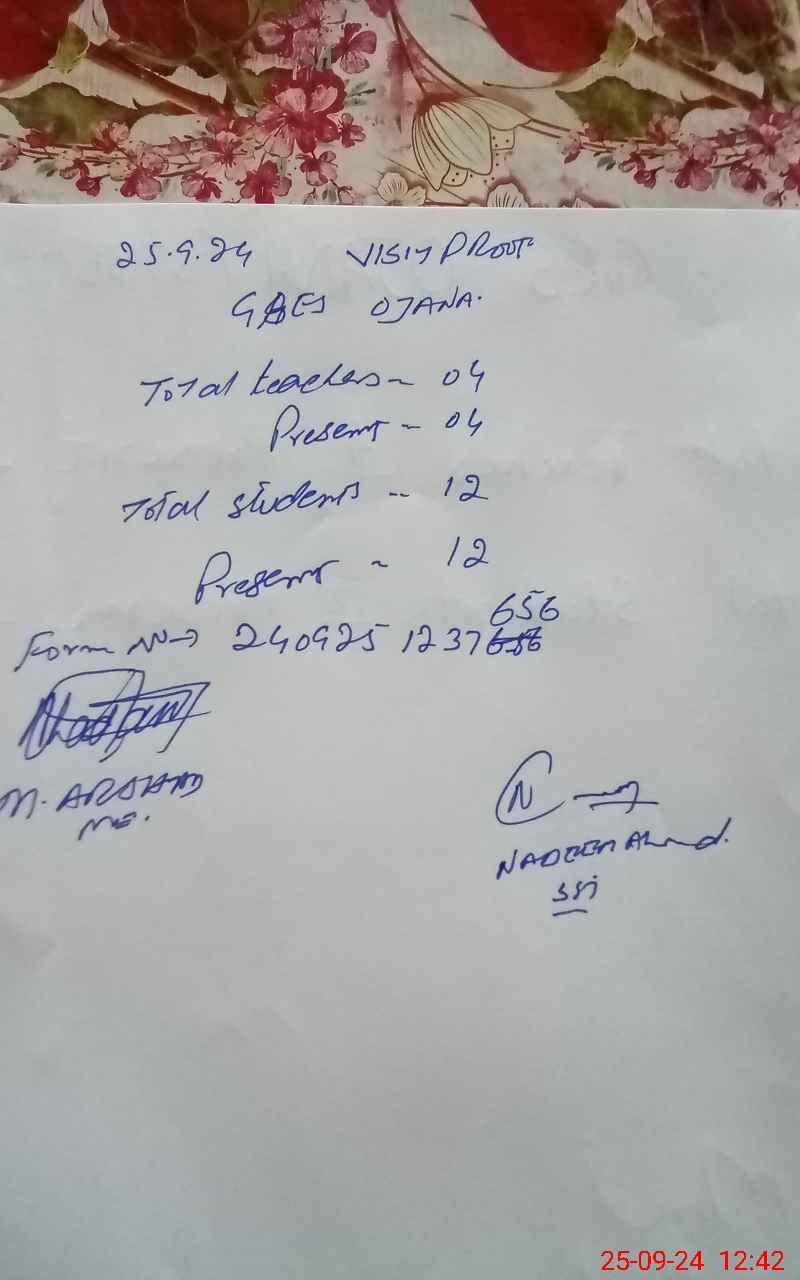 25.9.24 VISIT PROOF
GBES OJANA.
Total teachers - 04
Present - 04
Total students - 12
Present - 12
656
Form No → 240925 1237656
M. ARSHAD
ME.
N
NADEEM Ahmad.
SSI
25-09-24 12:42